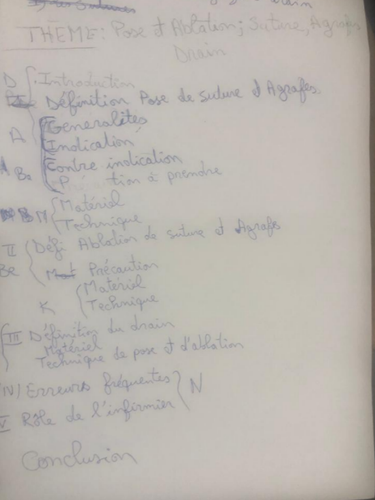 THEME: Pose d'Ablation; Suture, Agrafes
Drain
D Introduction
Définition Pose de suture d'Agrafes
A Generalités
Indication
Be Contre indication
tion à prendre
M Matériel
Technique
II Défi Ablation de suture d'Agrafes
Be Précaution
K Matériel
Technique
III Définition du drain
Matériel
Technique de pose et d'ablation
IV/ Erreurs fréquentes N
V Rôle de l'infirmier
Conclusion